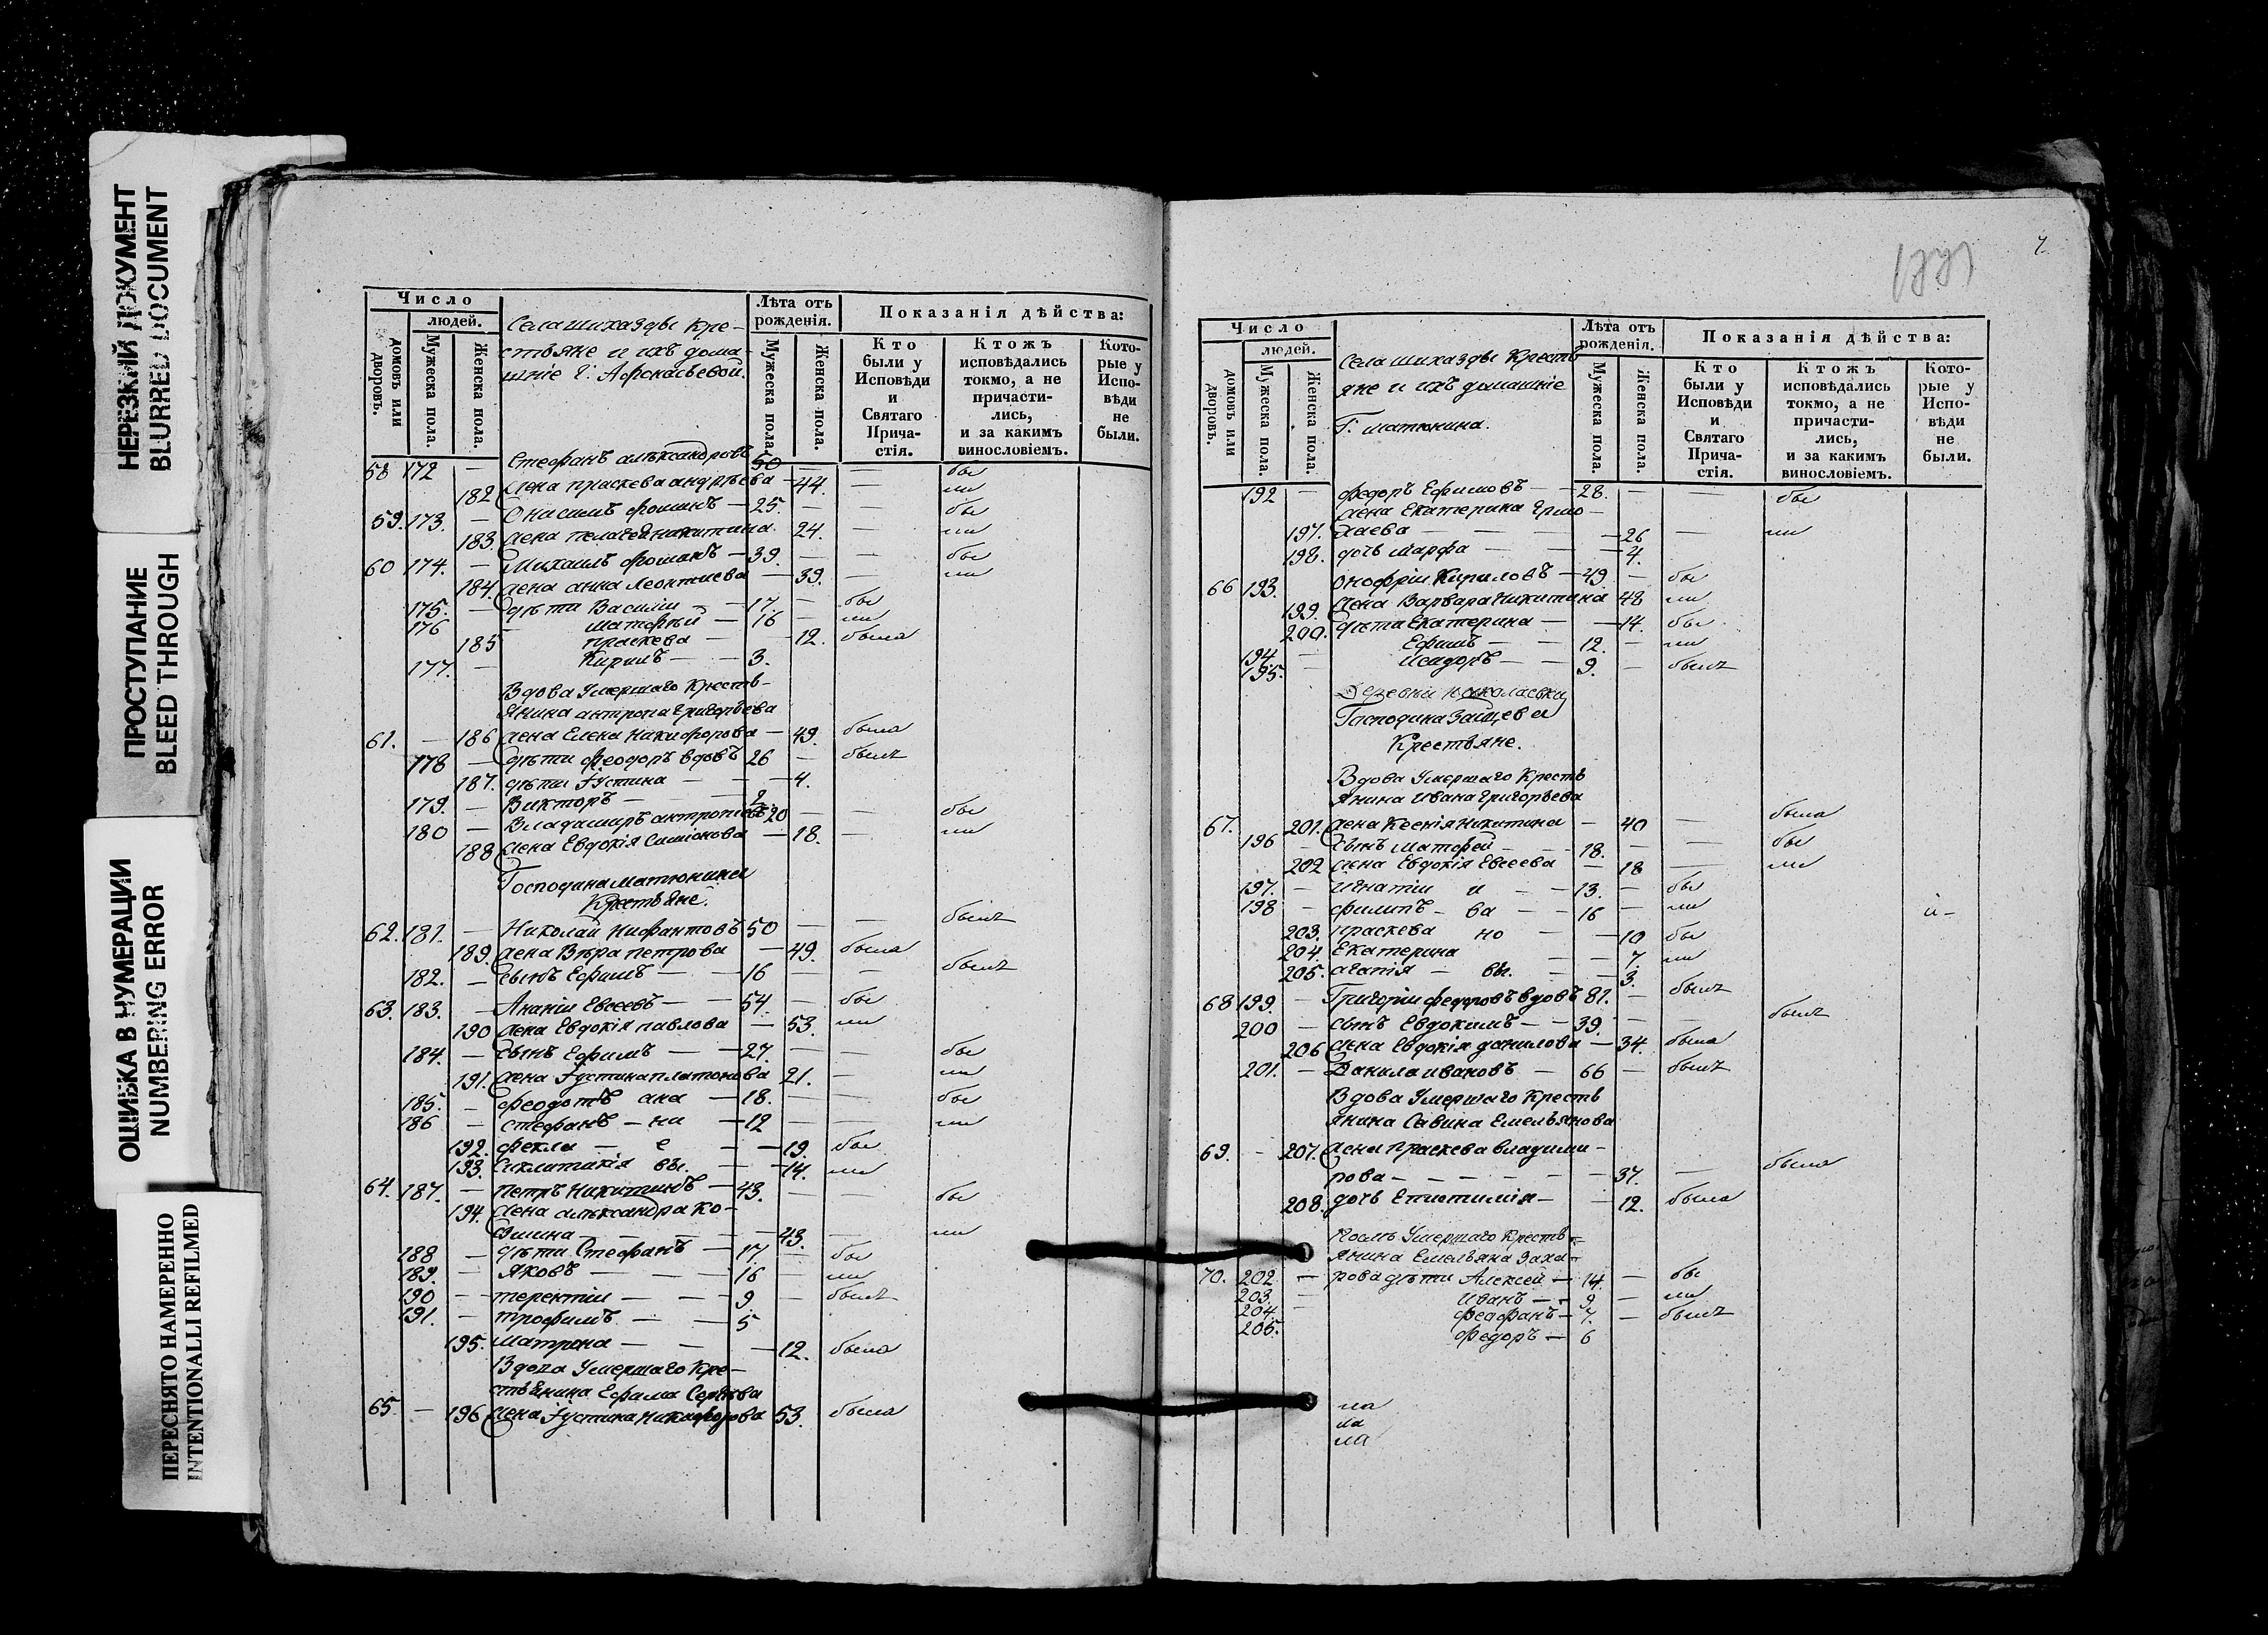 НЕРЕЗКИЙ ДОКУМЕНТ
BLURRED DOCUMENT
ПРОСТУПАНИЕ
BLEED THROUGH
ОШИБКА В НУМЕРАЦИИ
NUMBERING ERROR
ПЕРЕСНЯТО НАМЕРЕННО
INTENTIONALLI REFILMED
Число
людей.
домовъ или дворовъ.
Мужеска пола.
Женска пола.
Села шихазды кре-
стьяне и ихъ дома-
шніе Г. Афонасьевой.
Лѣта отъ рожденія.
Мужеска пола.
Женска пола.
Показанія дѣйства:
Кто были у Исповѣди и Святаго Прича- стія.
Ктожъ исповѣдались токмо, а не причасти- лись, и за какимъ винословіемъ.
Кото- рые у Испо- вѣди не были.
58 172 — Стефанъ александровъ 50 — — бы
182 жена праскева андрѣева — 44. — ли
59. 173. — Онисимъ фоминъ — 25. — — бы
183. жена пелагея никитина 24. — ли
60 174. — Михаилъ фоминъ — 39. — — бы
184. жена анна леонтиева — 39. — ли
175. — дѣти Василіи — 17. — бы
176 матфей — 16 — ли
185 праскева — 12. была
177. — Кирилъ — — 3.
Вдова Умершаго Кресть-
янина антропа григорьева
61. — 186 жена Елена Никифорова — 49. была
178 — дѣти феодоръ вдовъ 26 — былъ
187. дѣти Іустина — — 4.
179. — Викторъ — — 2
180 — Владимиръ антроповъ 20 — — бы
188 жена Евдокія Симіонова — 18. — ли
Господина матюнина
Крестьяне.
62. 181. — Николай Нифантовъ 50 — — былъ
189. жена Вѣра петрова — 49. была
182. — сынъ Ефимъ — — 16 — былъ
63. 183. — Ананіи Евсеевъ — — 54. — бы
190 жена Евдокія павлова — 53. ли
184. — сынъ Ефимъ — — 27. — — бы
191. жена Іустина платонова 21. — ли
185. — феодотъ ана — 18. — — бы
186 — стефанъ — ни — 12 — — ли
192. фекла — е — 19. бы
193. Синклитикія вы. — 14. ли
64. 187. — петръ Никитинъ — 43. — — бы
194. жена александра Ко-
зьмина — — — 43. — ли
188 — дѣти Стефанъ — 17. — бы
189. — Яковъ — — — 16 — ли
190 — терентіи — — — 9 — былъ
191. — трофимъ — — 5
195. матрона — — — 12. была
Вдова Умершаго Кре-
стьянина Ефима Сергѣева
65. — 196 жена Іустина Никифорова 53. была
7.
Число
людей.
домовъ или дворовъ.
Мужеска пола.
Женска пола.
Села шихазды Кресть
яне и ихъ домашніе
Г. матюнина.
Лѣта отъ рожденія.
Мужеска пола.
Женска пола.
Показанія дѣйства:
Кто были у Исповѣди и Святаго Прича- стія.
Ктожъ исповѣдались токмо, а не причасти- лись, и за какимъ винословіемъ.
Кото- рые у Испо- вѣди не были.
192 — федоръ Ефимовъ — — 28. — — бы
жена Екатерина Ермо-
197. лаева — — 26 — ли
198. дочь марфа — — 4.
66 193. онофріи Кириловъ — 49 — бы
199. жена Варвара Никитина 48 ли
200. дѣти Екатерина — — 14. бы
194 — Ефимъ — — 12. — ли
195. — исидоръ — — 9. — былъ
Деревни
Господина Зайцева
Крестьяне.
Вдова Умершаго Кресть
янина Ивана Григорьева
67. 201. жена Ксенія Никитина — 40 — была
196 — сынъ матфей — — 18. — — бы
202 жена Евдокія Евсеева — 18 — ли
197. — игнатіи и — — 13. — бы
198 — филипъ — ва — — 16 — ли
203. праскева но — — 10 бы
204. Екатерина — — 7. ли
205. агапія — вы. — — 3.
68 199. — Григоріи федоровъ вдовъ 81. — былъ
200 — сынъ Евдокимъ — — 39. — — былъ
206 жена Евдокія данилова — 34. была
201. — Данила ивановъ — 66 — былъ
Вдова Умершаго Кресть
янина Савина Емельянова
69. — 207. жена праскева владими-
рова — — — — — 37. — была
208. дочь Епистимія — — 12. была
Послѣ Умершаго Кресть-
янина Емельяна Заха-
70. 202. — рова дѣти Алексей — 14. — бы
203. — иванъ — — 9 — ли
204. — феофанъ — 7. — былъ
205. федоръ — 6
ла
ла
ла